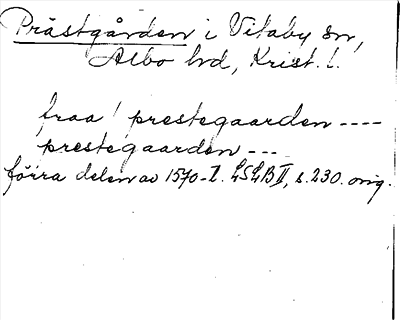 Prästgården i Vitaby sn,
Albo hd, Krist. l.
fraa! prestegaarden ----
prestegaarden ---
förra delen av 1570-t. LSLB II, s. 230. orig.